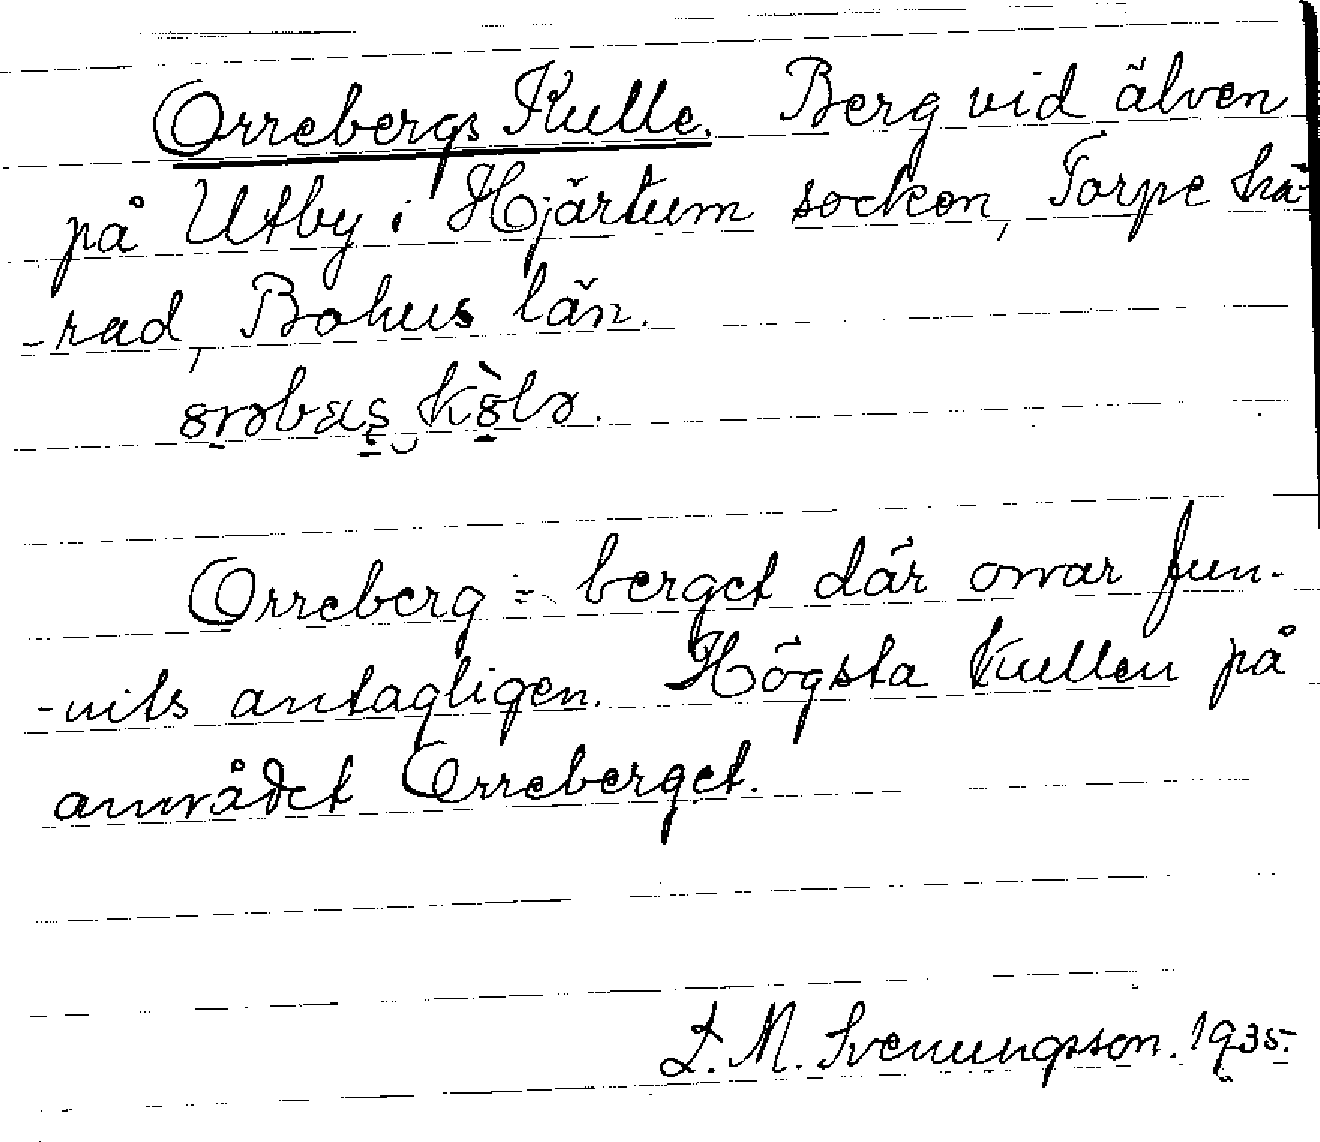 Orrebergs Kulle. Berg vid älven
på Utby i Hjärtum socken, Torpe hä-
-rad, Bohus län.
Orreberg = berget där orrar fun-
-nits antagligen. Högsta kullen på
området Orreberget.
L. M. Svenungsson. 1935.